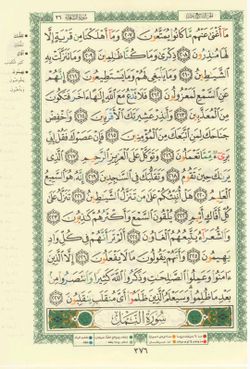 سورة الشعراء ٢٦
مَا أَغْنَىٰ عَنْهُم مَّا كَانُوا يُمَتَّعُونَ ﴿٢٠٧﴾ وَمَا أَهْلَكْنَا مِن قَرْيَةٍ إِلَّا
لَهَا مُنذِرُونَ ﴿٢٠٨﴾ ذِكْرَىٰ وَمَا كُنَّا ظَالِمِينَ ﴿٢٠٩﴾ وَمَا تَنَزَّلَتْ بِهِ
الشَّيَاطِينُ ﴿٢١٠﴾ وَمَا يَنبَغِي لَهُمْ وَمَا يَسْتَطِيعُونَ ﴿٢١١﴾ إِنَّهُمْ
عَنِ السَّمْعِ لَمَعْزُولُونَ ﴿٢١٢﴾ فَلَا تَدْعُ مَعَ اللَّهِ إِلَٰهًا آخَرَ فَتَكُونَ
مِنَ الْمُعَذَّبِينَ ﴿٢١٣﴾ وَأَنذِرْ عَشِيرَتَكَ الْأَقْرَبِينَ ﴿٢١٤﴾ وَاخْفِضْ
جَنَاحَكَ لِمَنِ اتَّبَعَكَ مِنَ الْمُؤْمِنِينَ ﴿٢١٥﴾ فَإِنْ عَصَوْكَ فَقُلْ إِنِّي
بَرِيءٌ مِّمَّا تَعْمَلُونَ ﴿٢١٦﴾ وَتَوَكَّلْ عَلَى الْعَزِيزِ الرَّحِيمِ ﴿٢١٧﴾ الَّذِي
يَرَاكَ حِينَ تَقُومُ ﴿٢١٨﴾ وَتَقَلُّبَكَ فِي السَّاجِدِينَ ﴿٢١٩﴾ إِنَّهُ هُوَ
السَّمِيعُ الْعَلِيمُ ﴿٢٢٠﴾ هَلْ أُنَبِّئُكُمْ عَلَىٰ مَن تَنَزَّلُ الشَّيَاطِينُ ﴿٢٢١﴾ تَنَزَّلُ عَلَىٰ
كُلِّ أَفَّاكٍ أَثِيمٍ ﴿٢٢٢﴾ يُلْقُونَ السَّمْعَ وَأَكْثَرُهُمْ كَاذِبُونَ ﴿٢٢٣﴾
وَالشُّعَرَاءُ يَتَّبِعُهُمُ الْغَاوُونَ ﴿٢٢٤﴾ أَلَمْ تَرَ أَنَّهُمْ فِي كُلِّ وَادٍ
يَهِيمُونَ ﴿٢٢٥﴾ وَأَنَّهُمْ يَقُولُونَ مَا لَا يَفْعَلُونَ ﴿٢٢٦﴾ إِلَّا الَّذِينَ
آمَنُوا وَعَمِلُوا الصَّالِحَاتِ وَذَكَرُوا اللَّهَ كَثِيرًا وَانتَصَرُوا مِن
بَعْدِ مَا ظُلِمُوا وَسَيَعْلَمُ الَّذِينَ ظَلَمُوا أَيَّ مُنقَلَبٍ يَنقَلِبُونَ ﴿٢٢٧﴾
سُورَةُ النَّمْلِ
٣٧٦